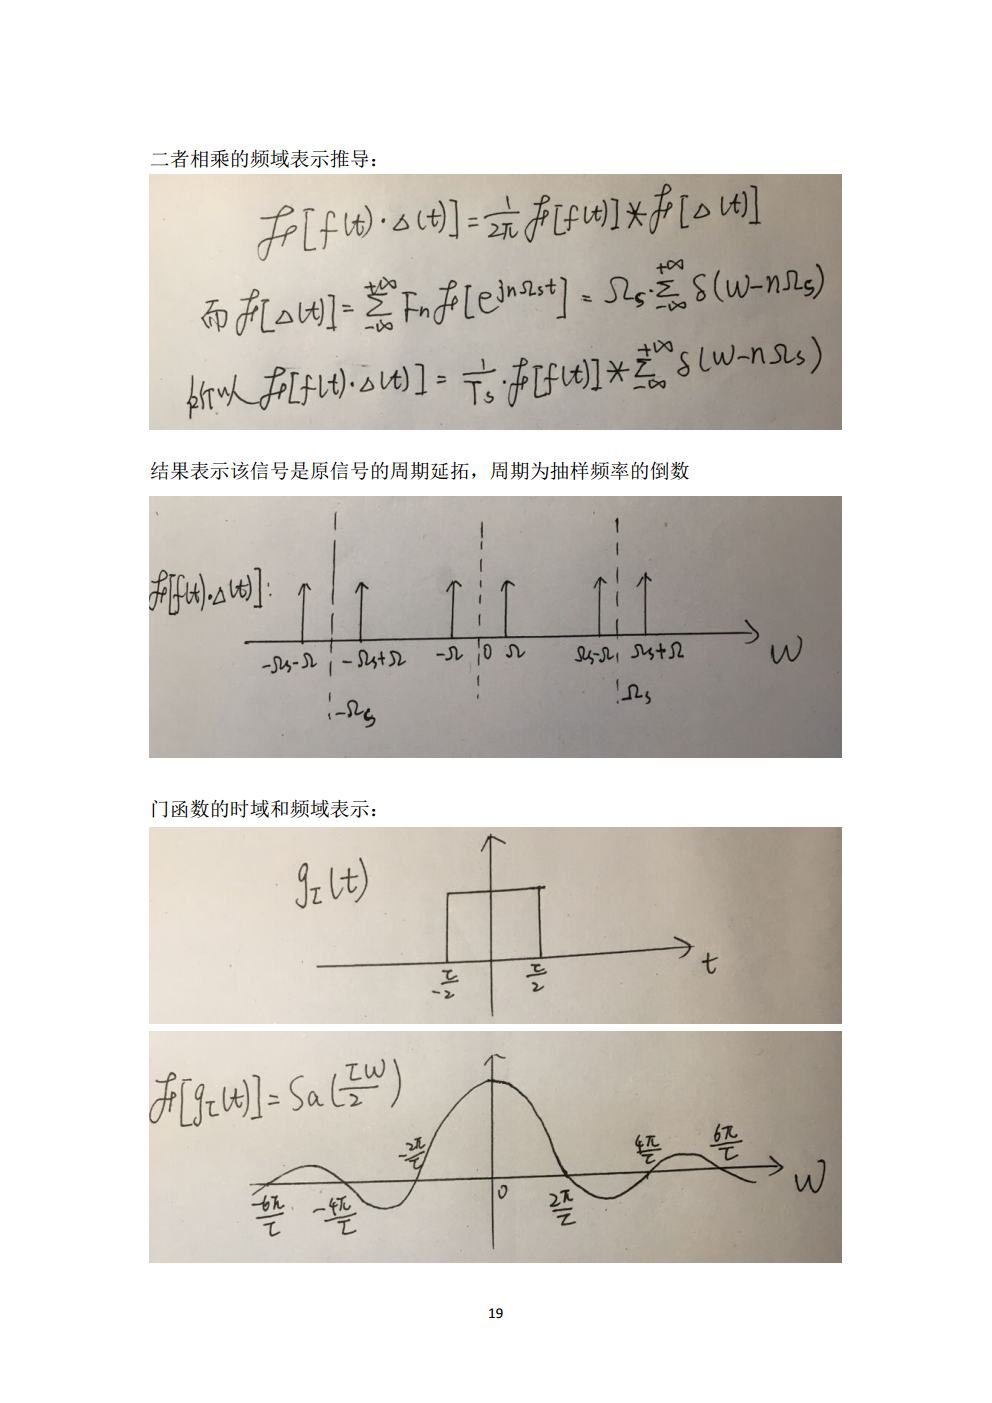 二者相乘的频域表示推导：
ℱ[f(t)·Δ(t)]=1/2π ℱ[f(t)]*ℱ[Δ(t)]
而 ℱ[Δ(t)]=∑_{-∞}^{+∞} Fn ℱ[e^{jnΩst}]=Ωs·∑_{-∞}^{+∞} δ(w-nΩs)
所以 ℱ[f(t)·Δ(t)]=1/Ts·ℱ[f(t)]*∑_{-∞}^{+∞} δ(w-nΩs)
结果表示该信号是原信号的周期延拓，周期为抽样频率的倒数
ℱ[f(t)·Δ(t)]:
-Ωs-Ω -Ωs+Ω -Ω 0 Ω Ωs-Ω Ωs+Ω w
-Ωs Ωs
门函数的时域和频域表示：
gτ(t)
-τ/2 τ/2 t
ℱ[gτ(t)]=Sa(τw/2)
-2π/τ 4π/τ 6π/τ
-6π/τ -4π/τ 0 2π/τ w
19